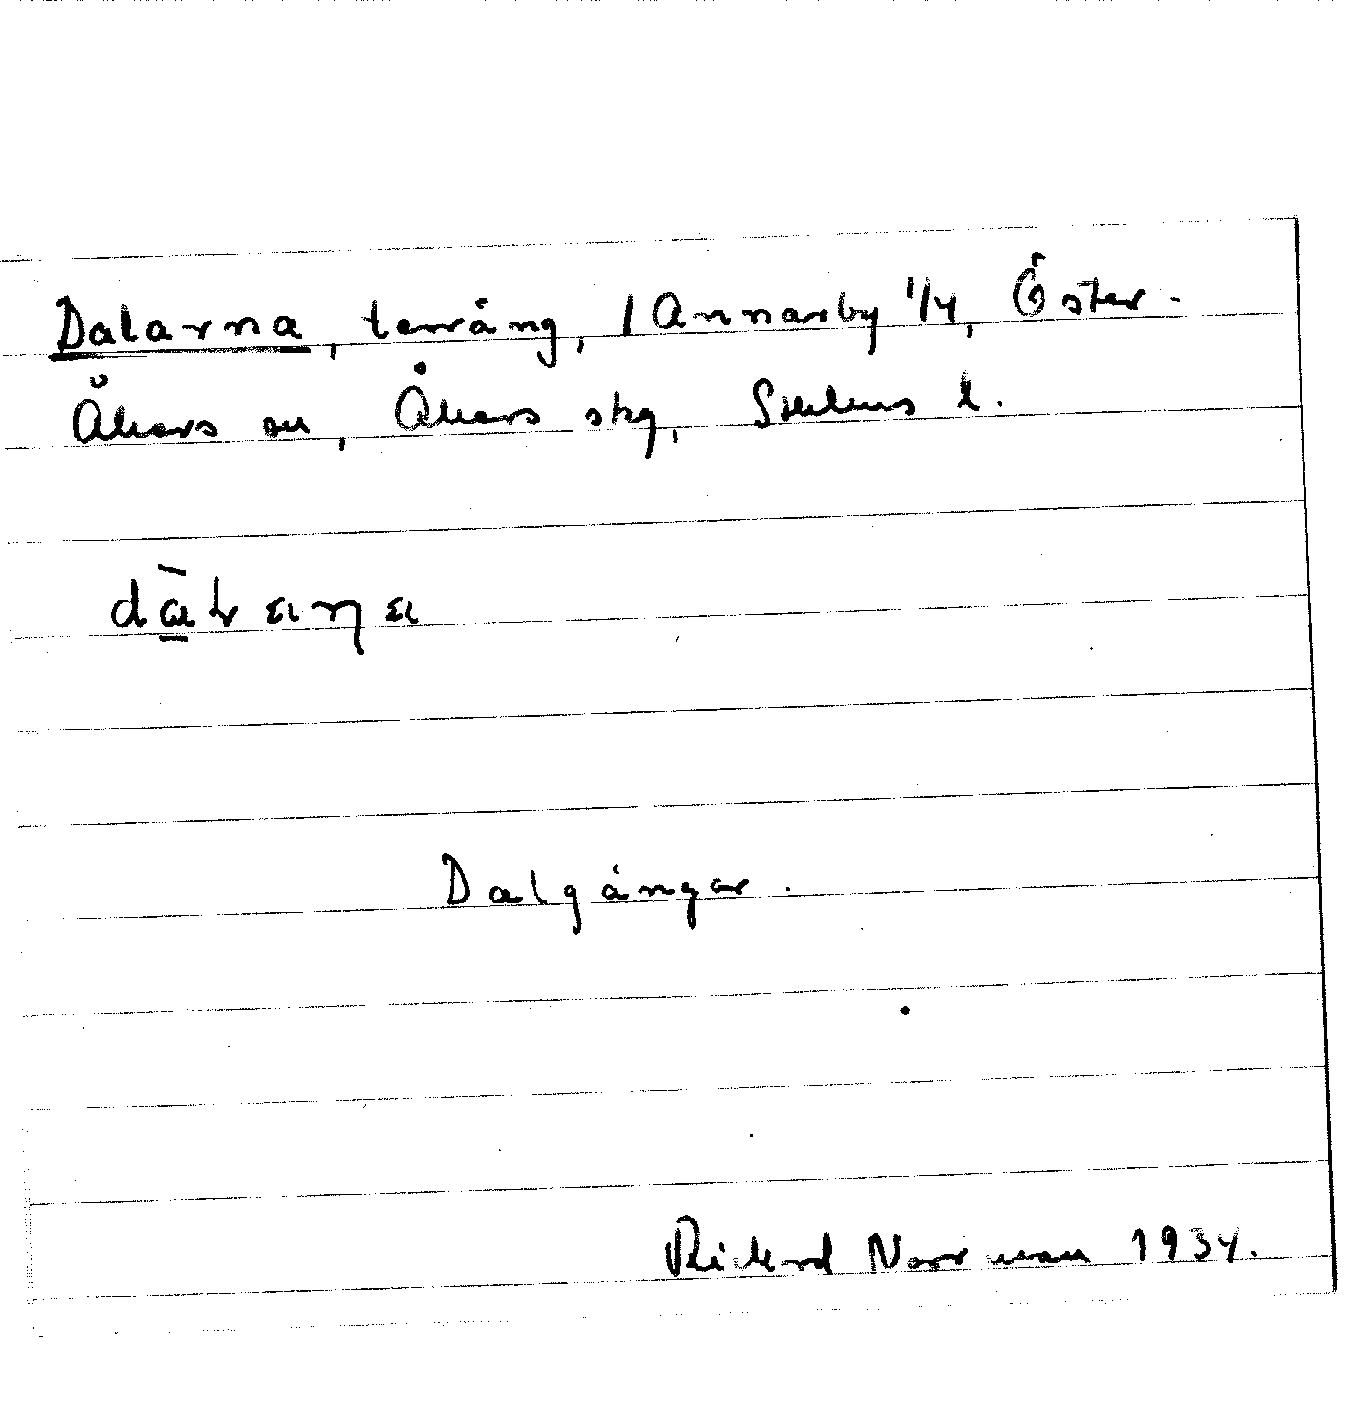 Dalarna, terräng, 1 Annarby 1/4, Öster-
Åkers sn, Åkers skg, Sthlms l.
dàlarna
Dalgångar.
Rickard Norrman 1934.